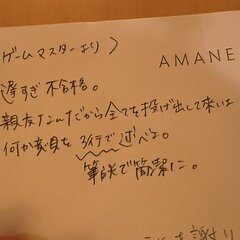 ゲームマスターより〉
AMANE
遅すぎ不合格。
親友なんだから全てを投げ出して来いよ
何か意見を3行で述べよ。
筆談で簡潔に。